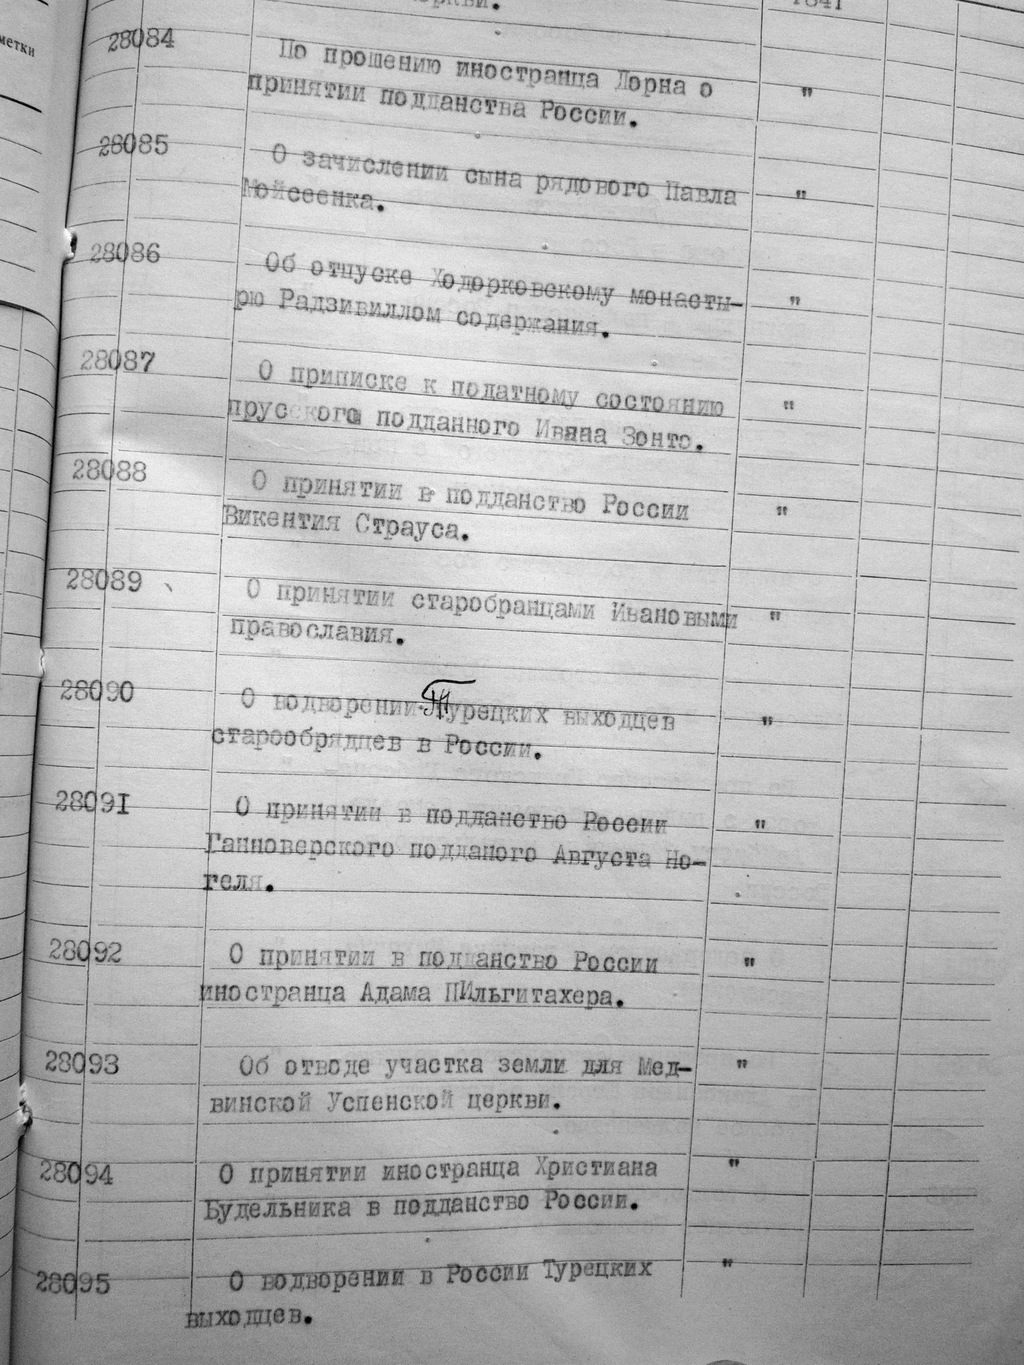 метки
1841
28084 По прошению иностранца Дорна о "
принятии подданства России.
28085 О зачислении сына рядового Павла "
Мойсеенка.
28086 Об отпуске Ходорковскому монасты- "
рю Радзивиллом содержания.
28087 О приписке к податному состоянию "
прусского подданного Ивана Зонто.
28088 О принятии в подданство России "
Викентия Страуса.
28089 О принятии старобранцами Ивановыми "
православия.
28090 О водворении Турецких выходцев "
старообрядцев в России.
28091 О принятии в подданство России "
Ганноверского подданого Августа Но-
геля.
28092 О принятии в подданство России "
иностранца Адама ПИльгитахера.
28093 Об отводе участка земли для Мед- "
винской Успенской церкви.
28094 О принятии иностранца Христиана "
Будельника в подданство России.
28095 О водворении в России Турецких "
выходцев.